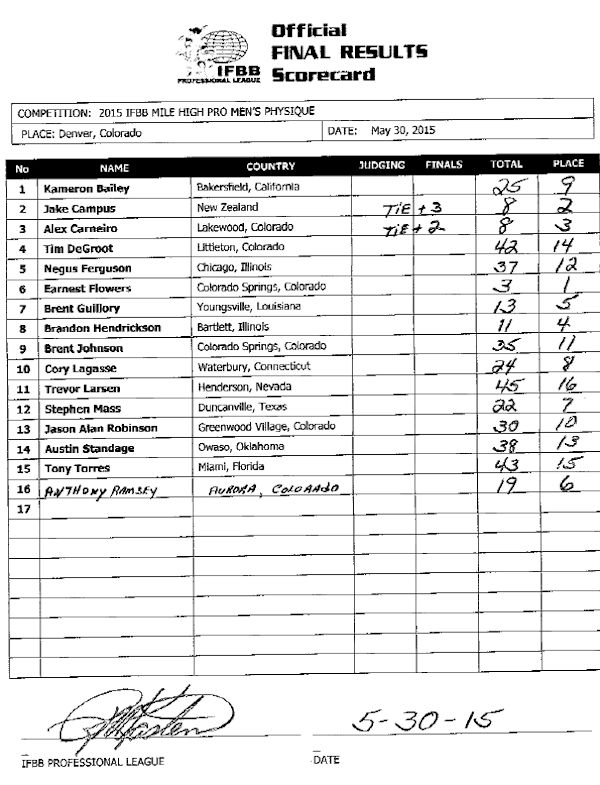 Official
FINAL RESULTS
Scorecard
IFBB
PROFESSIONAL LEAGUE
COMPETITION: 2015 IFBB MILE HIGH PRO MEN'S PHYSIQUE
PLACE: Denver, Colorado DATE: May 30, 2015
No NAME COUNTRY JUDGING FINALS TOTAL PLACE
1 Kameron Bailey Bakersfield, California 25 9
2 Jake Campus New Zealand TIE + 3 8 2
3 Alex Carneiro Lakewood, Colorado TIE + 2 8 3
4 Tim DeGroot Littleton, Colorado 42 14
5 Negus Ferguson Chicago, Illinois 37 12
6 Earnest Flowers Colorado Springs, Colorado 3 1
7 Brent Guillory Youngsville, Louisiana 13 5
8 Brandon Hendrickson Bartlett, Illinois 11 4
9 Brent Johnson Colorado Springs, Colorado 35 11
10 Cory Lagasse Waterbury, Connecticut 24 8
11 Trevor Larsen Henderson, Nevada 45 16
12 Stephen Mass Duncanville, Texas 22 7
13 Jason Alan Robinson Greenwood Village, Colorado 30 10
14 Austin Standage Owaso, Oklahoma 38 13
15 Tony Torres Miami, Florida 43 15
16 ANTHONY RAMSEY AURORA, COLORADO 19 6
17
5-30-15
IFBB PROFESSIONAL LEAGUE DATE